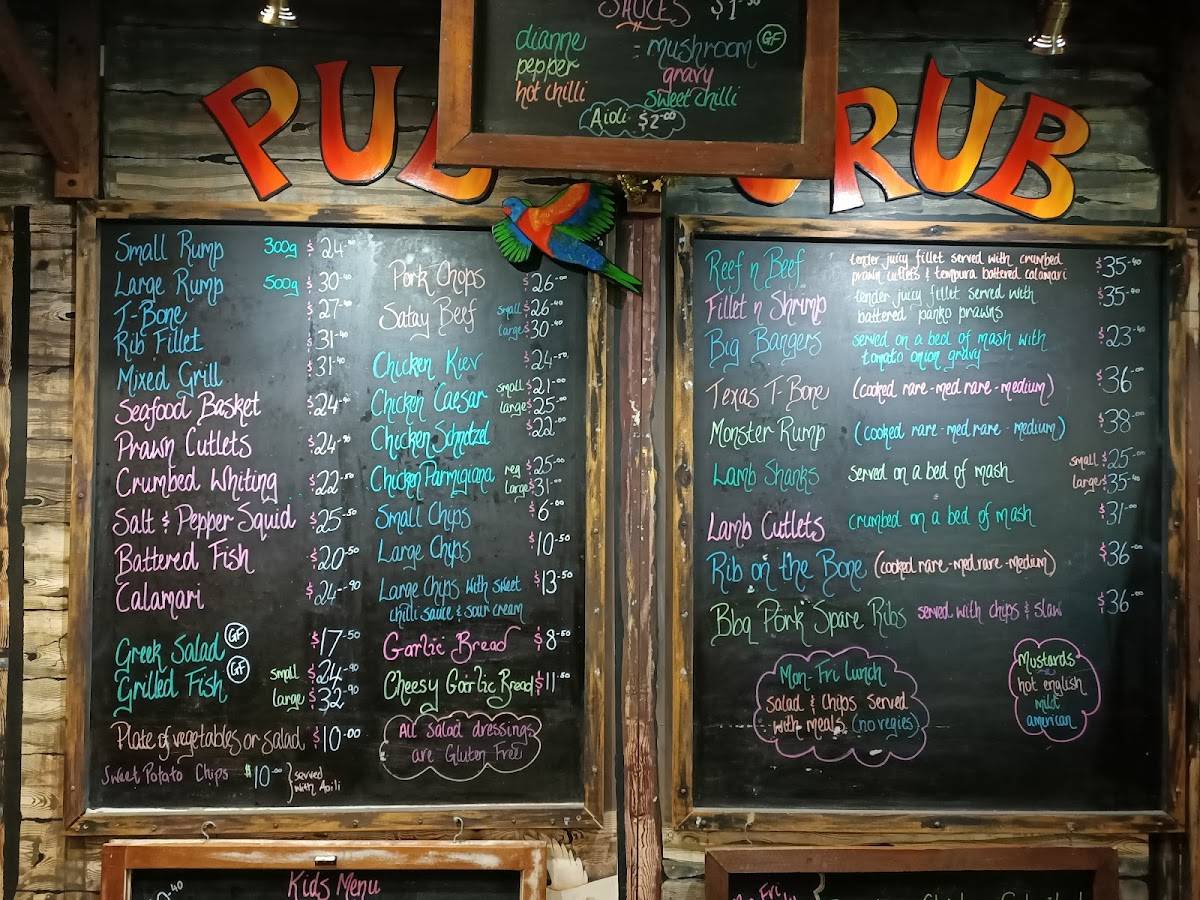 SAUCES $1.50
dianne = mushroom GF
pepper gravy
hot chilli sweet chilli
Aioli $2.00
PUB GRUB
Small Rump 300g $24
Large Rump 500g $30
T-Bone $27
Rib Fillet $31
Mixed Grill $31.40
Seafood Basket $24
Prawn Cutlets $24.90
Crumbed Whiting $22.50
Salt & Pepper Squid $25.50
Battered Fish $20.50
Calamari $24.90
Greek Salad GF $17.50
Grilled Fish GF small $24.90
large $32.90
Plate of vegetables or salad $10.00
Sweet Potato Chips $10.00 } served
with Aoili
Pork Chops $26
Satay Beef small $26.40
large $30.40
Chicken Kiev $24.50
Chicken Caesar small $21.00
large $25.00
Chicken Schntzel $22.00
Chicken Parmigiana reg $25.00
large $31.00
Small Chips $6.00
Large Chips $10.50
Large Chips with sweet $13.50
chilli sauce & sour cream
Garlic Bread $8.50
Cheesy Garlic Bread $11.50
All salad dressings
are Gluten Free
Reef n Beef tender juicy fillet served with crumbed $35.40
prawn cutlets & tempura battered calamari
Fillet n Shrimp tender juicy fillet served with $35
battered panko prawns
Big Bangers served on a bed of mash with $23.40
tomato onion gravy
Texas T-Bone (cooked rare-med rare-medium) $36
Monster Rump (cooked rare-med rare-medium) $38
Lamb Shanks served on a bed of mash small $25
large $35
Lamb Cutlets crumbed on a bed of mash $31
Rib on the Bone (cooked rare-med rare-medium) $36
Bbq Pork Spare Ribs served with chips & slaw $36
Mon-Fri lunch
Salad & Chips Served
with meals (no vegies)
Mustards
hot english
mild
american
Kids Menu